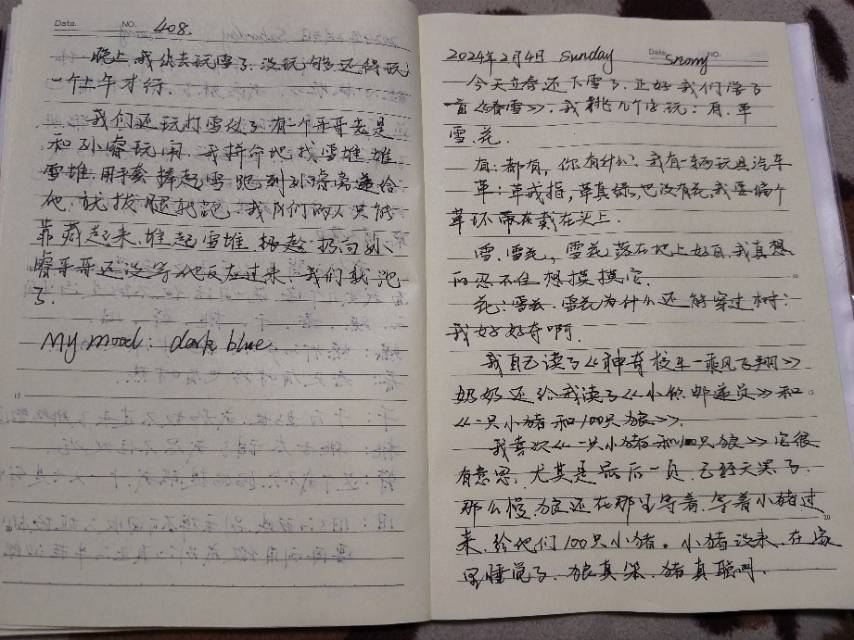 Date. NO. 408.
晚上,我伙去玩雪了.没玩够.还得玩
一个上午才行.
我们还玩打雪仗了.有一个哥哥老是
和孙睿玩闹.我拼命地找雪堆.堆
雪堆.用手套捧起雪跑到孙睿旁递给
他.就拔腿就跑.我们的人只能
靠藏起来.堆起雪堆.扔向孙
睿哥哥还没等他反应过来.我们就跑
了.
My mood: dark blue.
2024年2月4日 Sunday Date. snowy NO.
今天立春还下雪了.正好我们学了
一首《春雪》.我挑几个字玩:有.草
雪.花.
有:都有,你有什么?我有一辆玩具汽车
草:草戒指,草真绿,也没有花,我要编个
草环带在戴在头上.
雪.雪花,雪花落在地上好白.我真想
的忍不住想摸摸它.
花:雪花.雪花为什么还能穿过树?
我好好奇啊.
我自己读了《神奇校车-乘风飞翔》
奶奶还给我读了《小熊邮递员》和
《一只小猪和100只狼》.
我喜欢《一只小猪和100只狼》它很
有意思.尤其是最后一页.已经天黑了.
那么慢.狼还在那里等着.等着小猪过
来.给他们100只小猪.小猪没来.在家
里睡觉了.狼真笨.猪真聪明.